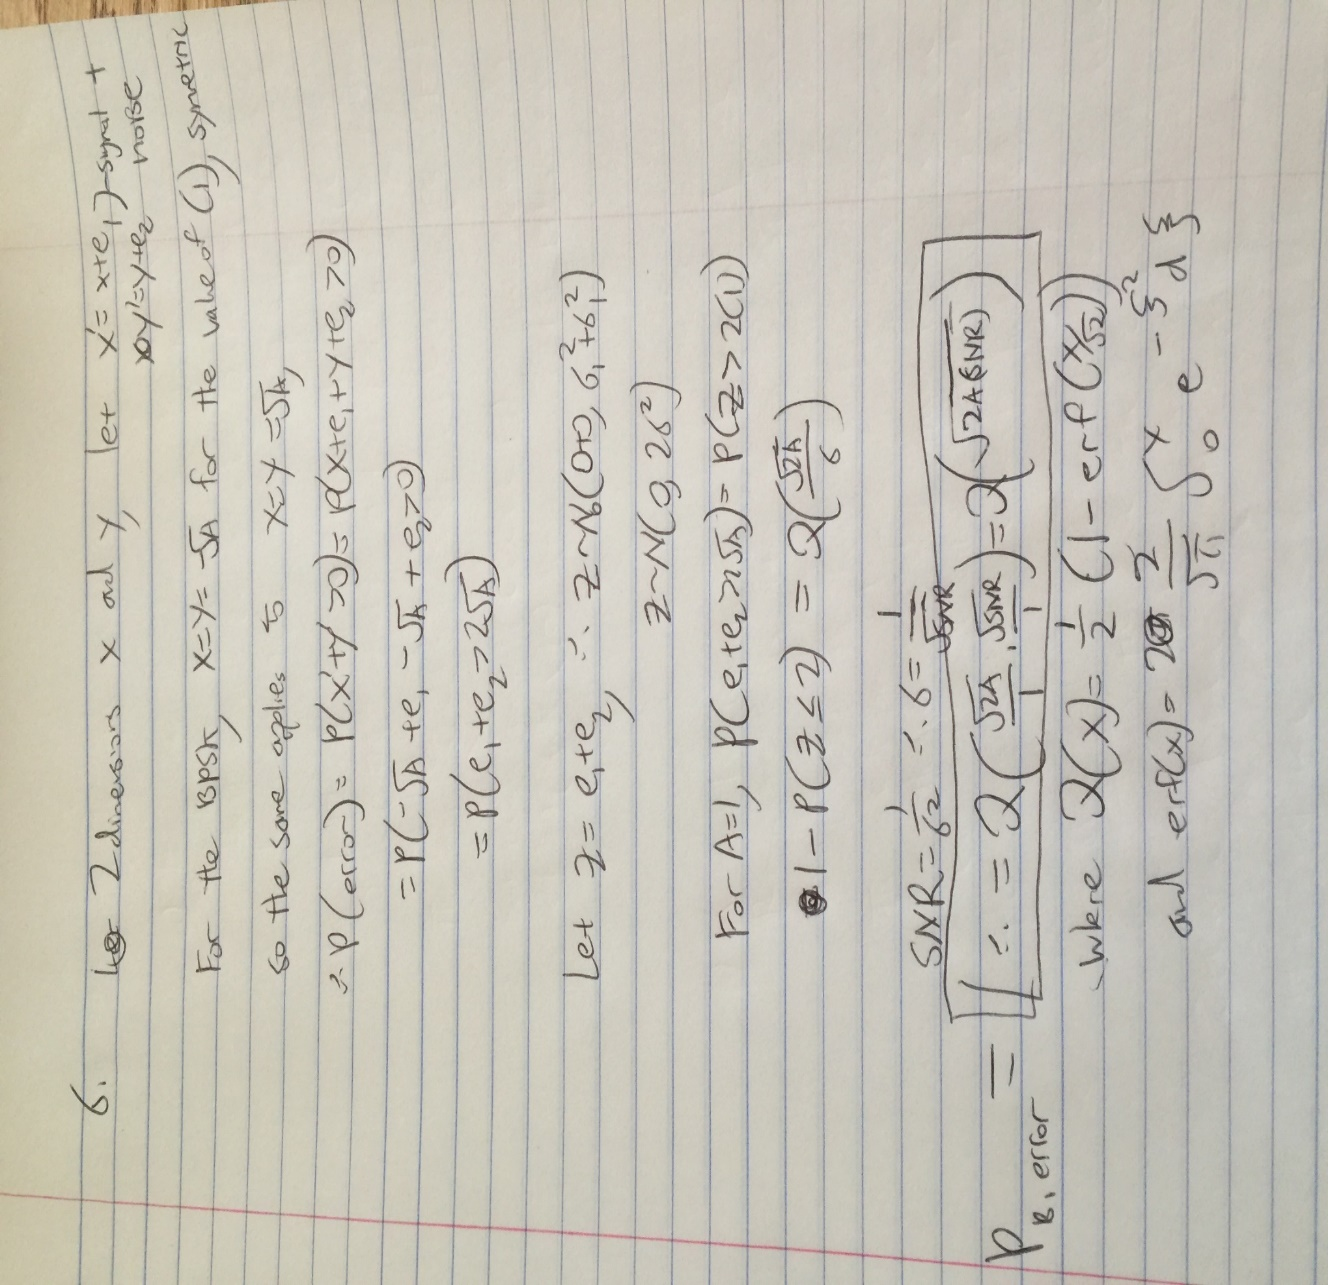 6. 2 dimensions x and y, let x' = x+e₁ } signal +
y' = y+e₂ noise
For the BPSK, x=y= -√A for the value of (1), symetric
so the same applies to x=y=√A,
∴ P(error) = P(x'+y'>0) = P(x+e₁+y+e₂>0)
= P(-√A+e₁-√A+e₂>0)
= P(e₁+e₂>2√A)
Let z = e₁+e₂, ∴ z~N(0+0, σ₁²+σ₁²)
z~N(0, 2σ²)
For A=1, P(e₁+e₂>2√A) = P(z>2(1))
1-P(z≤2) = Q(√2A/σ)
SNR = 1/σ² ∴ σ = 1/√SNR
P_B,error = ∴ = Q(√2A/1 · √SNR/1) = Q(√2A(SNR))
where Q(x) = 1/2 (1-erf(x/√2))
and erf(x) = 2/√π ∫₀ˣ e^-ξ² dξ